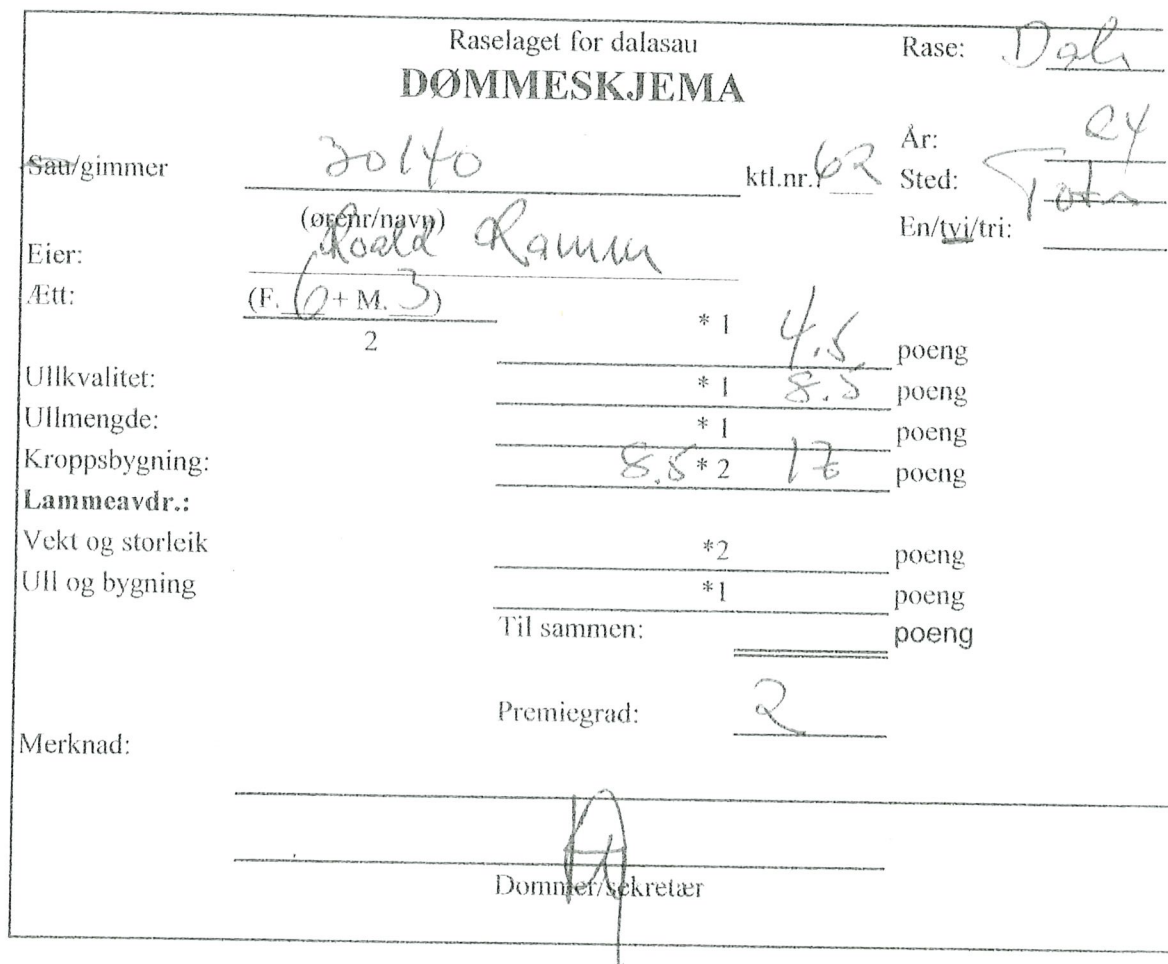 Raselaget for dalasau
Rase: Dala
DØMMESKJEMA
Sau/gimmer 30140 ktl.nr./ 62
År: 04
Sted:
(ørenr/navn)
En/tvi/tri:
Eier: Roald Ramm
Ætt: (F. 6 + M. 3) * 1 4.5 poeng
2
Ullkvalitet: * 1 8.5 poeng
Ullmengde: * 1 poeng
Kroppsbygning: 8.5 * 2 17 poeng
Lammeavdr.:
Vekt og storleik *2 poeng
Ull og bygning *1 poeng
Til sammen: poeng
Premiegrad: 2
Merknad:
Dommer/sekretær